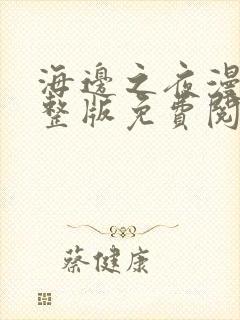 海邊之夜漫
整版免費閱
蔡健康